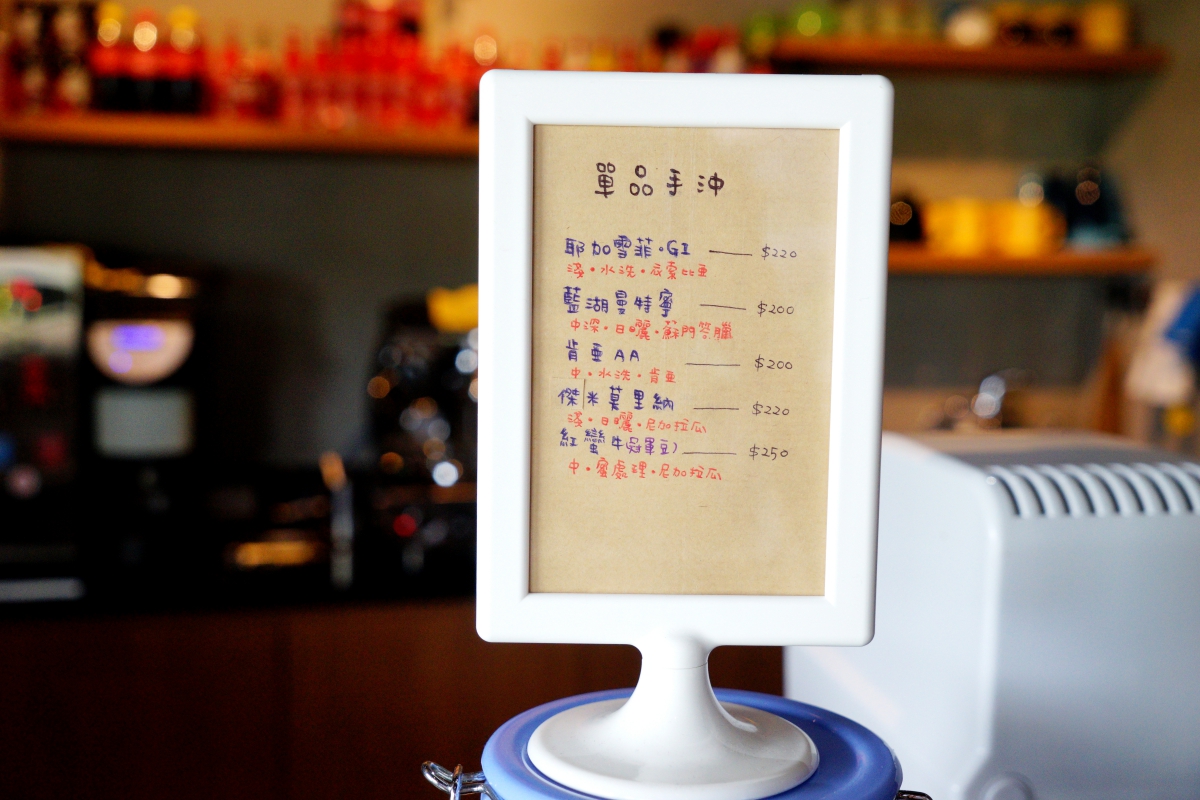 單品手沖
耶加雪菲•G1 —— $220
淺•水洗•衣索比亞
藍湖曼特寧 —— $200
中深•日曬•蘇門答臘
肯亞AA —— $200
中•水洗•肯亞
傑米莫里納 —— $220
淺•日曬•尼加拉瓜
紅蠻牛(冠軍豆) —— $250
中•蜜處理•尼加拉瓜